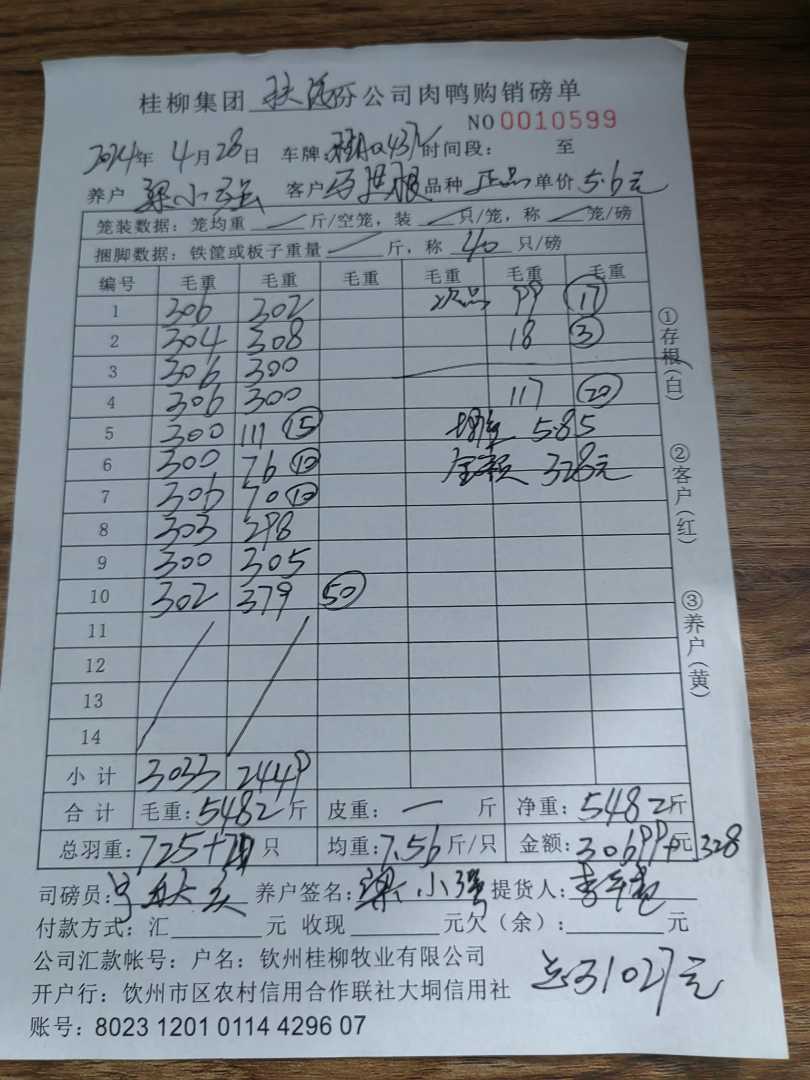 桂柳集团 扶绥分公司肉鸭购销磅单
NO 0010599
2024年 4月28日 车牌: 时间段: 至
养户 梁小强 客户 马洪根 品种 正品 单价 5.6元
笼装数据: 笼均重 斤/空笼, 装 只/笼, 称 笼/磅
捆脚数据: 铁筐或板子重量 斤, 称 40 只/磅
编号 毛重 毛重 毛重 毛重 毛重 毛重
1 306 302 次品 99 17
2 304 308 18 3
3 306 300
4 306 300 117 20
5 300 111 15 均重 5.85
6 300 76 10 金额 328元
7 306 70 10
8 303 298
9 300 305
10 302 379 50
11
12
13
14
小计 3033 2449
合计 毛重: 5482斤 皮重: 一 斤 净重: 5482斤
总羽重: 725+20 只 均重: 7.56斤/只 金额: 30699元+328
司磅员: 养户签名: 梁小强 提货人:
付款方式: 汇 元 收现 元欠(余): 元
公司汇款帐号: 户名: 钦州桂柳牧业有限公司
开户行: 饮州市区农村信用合作联社大垌信用社
总31027元
账号: 8023 1201 0114 4296 07
①存根(白)
②客户(红)
③养户(黄)